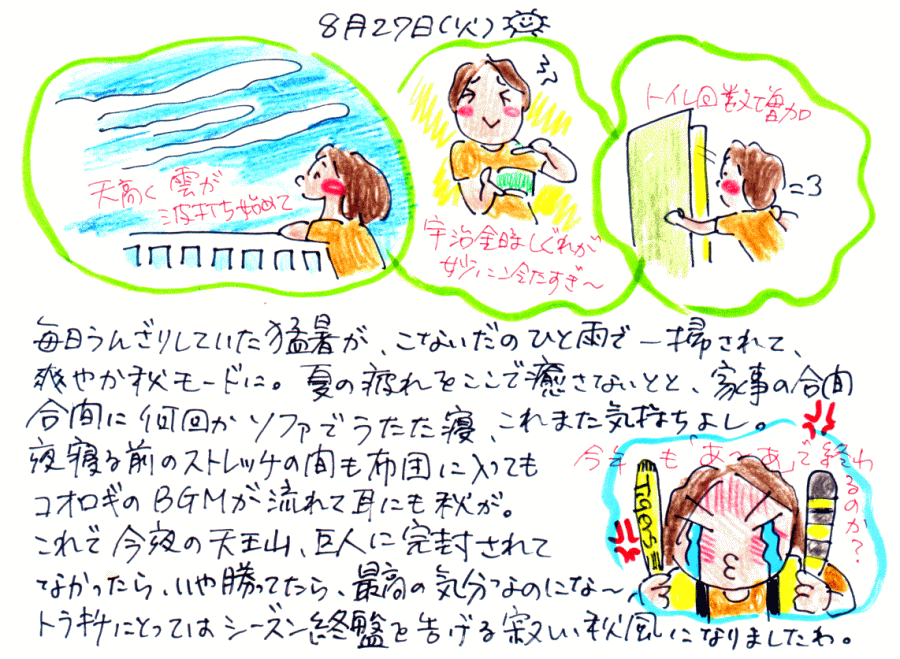 8月27日(火)
天高く 雲が
波打ち始めて
宇治金時しぐれが
妙に冷たすぎ〜
トイレ回数で増加
=3
毎日うんざりしていた猛暑が、こないだのひと雨で一掃されて、
爽やか秋モードに。夏の疲れをここで癒さないとと、家事の合間
合間に何回かソファでうたた寝、これまた気持ちよし。
夜寝る前のストレッチの間も布団に入っても
コオロギのBGMが流れて耳にも秋が。
これで今夜の天王山、巨人に完封されて
なかったら、いや勝ってたら、最高の気分なのにな〜
トラキチにとってはシーズン終盤を告げる寂しい秋風になりましたわ。
今年も「あ〜あ」で終わ
るのか?
Tigers